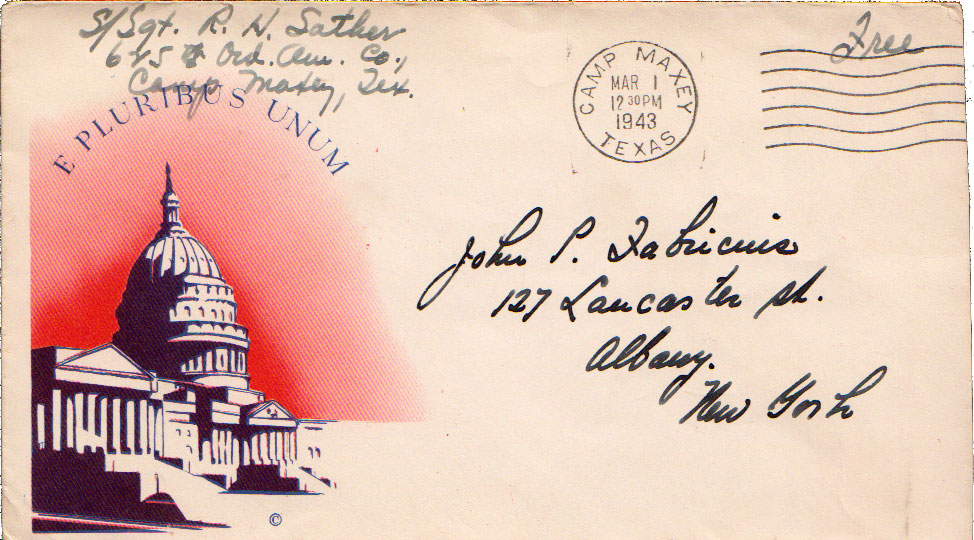 S/Sgt. R. H. Sather
625th Ord. Am. Co.,
Camp Maxey, Tex.
Free
CAMP MAXEY
MAR 1
12 30 PM
1943
TEXAS
E PLURIBUS UNUM
John P. Fabricius
127 Lancaster St.
Albany.
New York
©